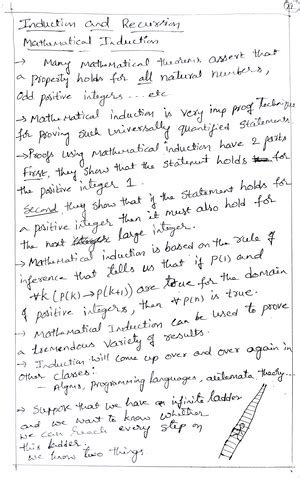 Induction and Recursion
Mathematical Induction
→ Many mathematical theorems assert that
a property holds for all natural numbers,
odd positive integers .... etc
→ Mathematical induction is very imp proof Technique
for proving such universally quantified statements
→ Proofs using Mathematical induction have 2 parts
First, they show that the statement holds for
the positive integer 1.
Second, they show that if the statement holds for
a positive integer then it must also hold for
the next large integer.
→ Mathematical induction is based on the rule of
inference that tells us that if P(1) and
∀k (P(k) → P(k+1)) are true for the domain
of positive integers, then ∀ P(n) is true.
→ Mathematical Induction can be used to prove
a tremendous variety of results.
→ Induction will come up over and over again in
other classes:
– Algms, programming languages, automata theory...
→ Suppose that we have an infinite ladder
and we want to know whether
we can reach every step on
this ladder.
we know two things